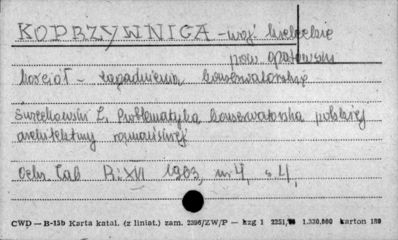 KOPRZYWNICA - woj. kieleckie
pow. opatowski
kościół - zagadnienia konserwatorskie
Święchowski Z, Problematyka konserwatorska polskiej
architektury romańskiej
Ochr. Zab R: XVI 1963, nr 4, s 4,
CWD — B-15b Karta katal. (z liniat.) zam. 2396/ZW/P — kzg 1 2351, 1.330.560 karton 180